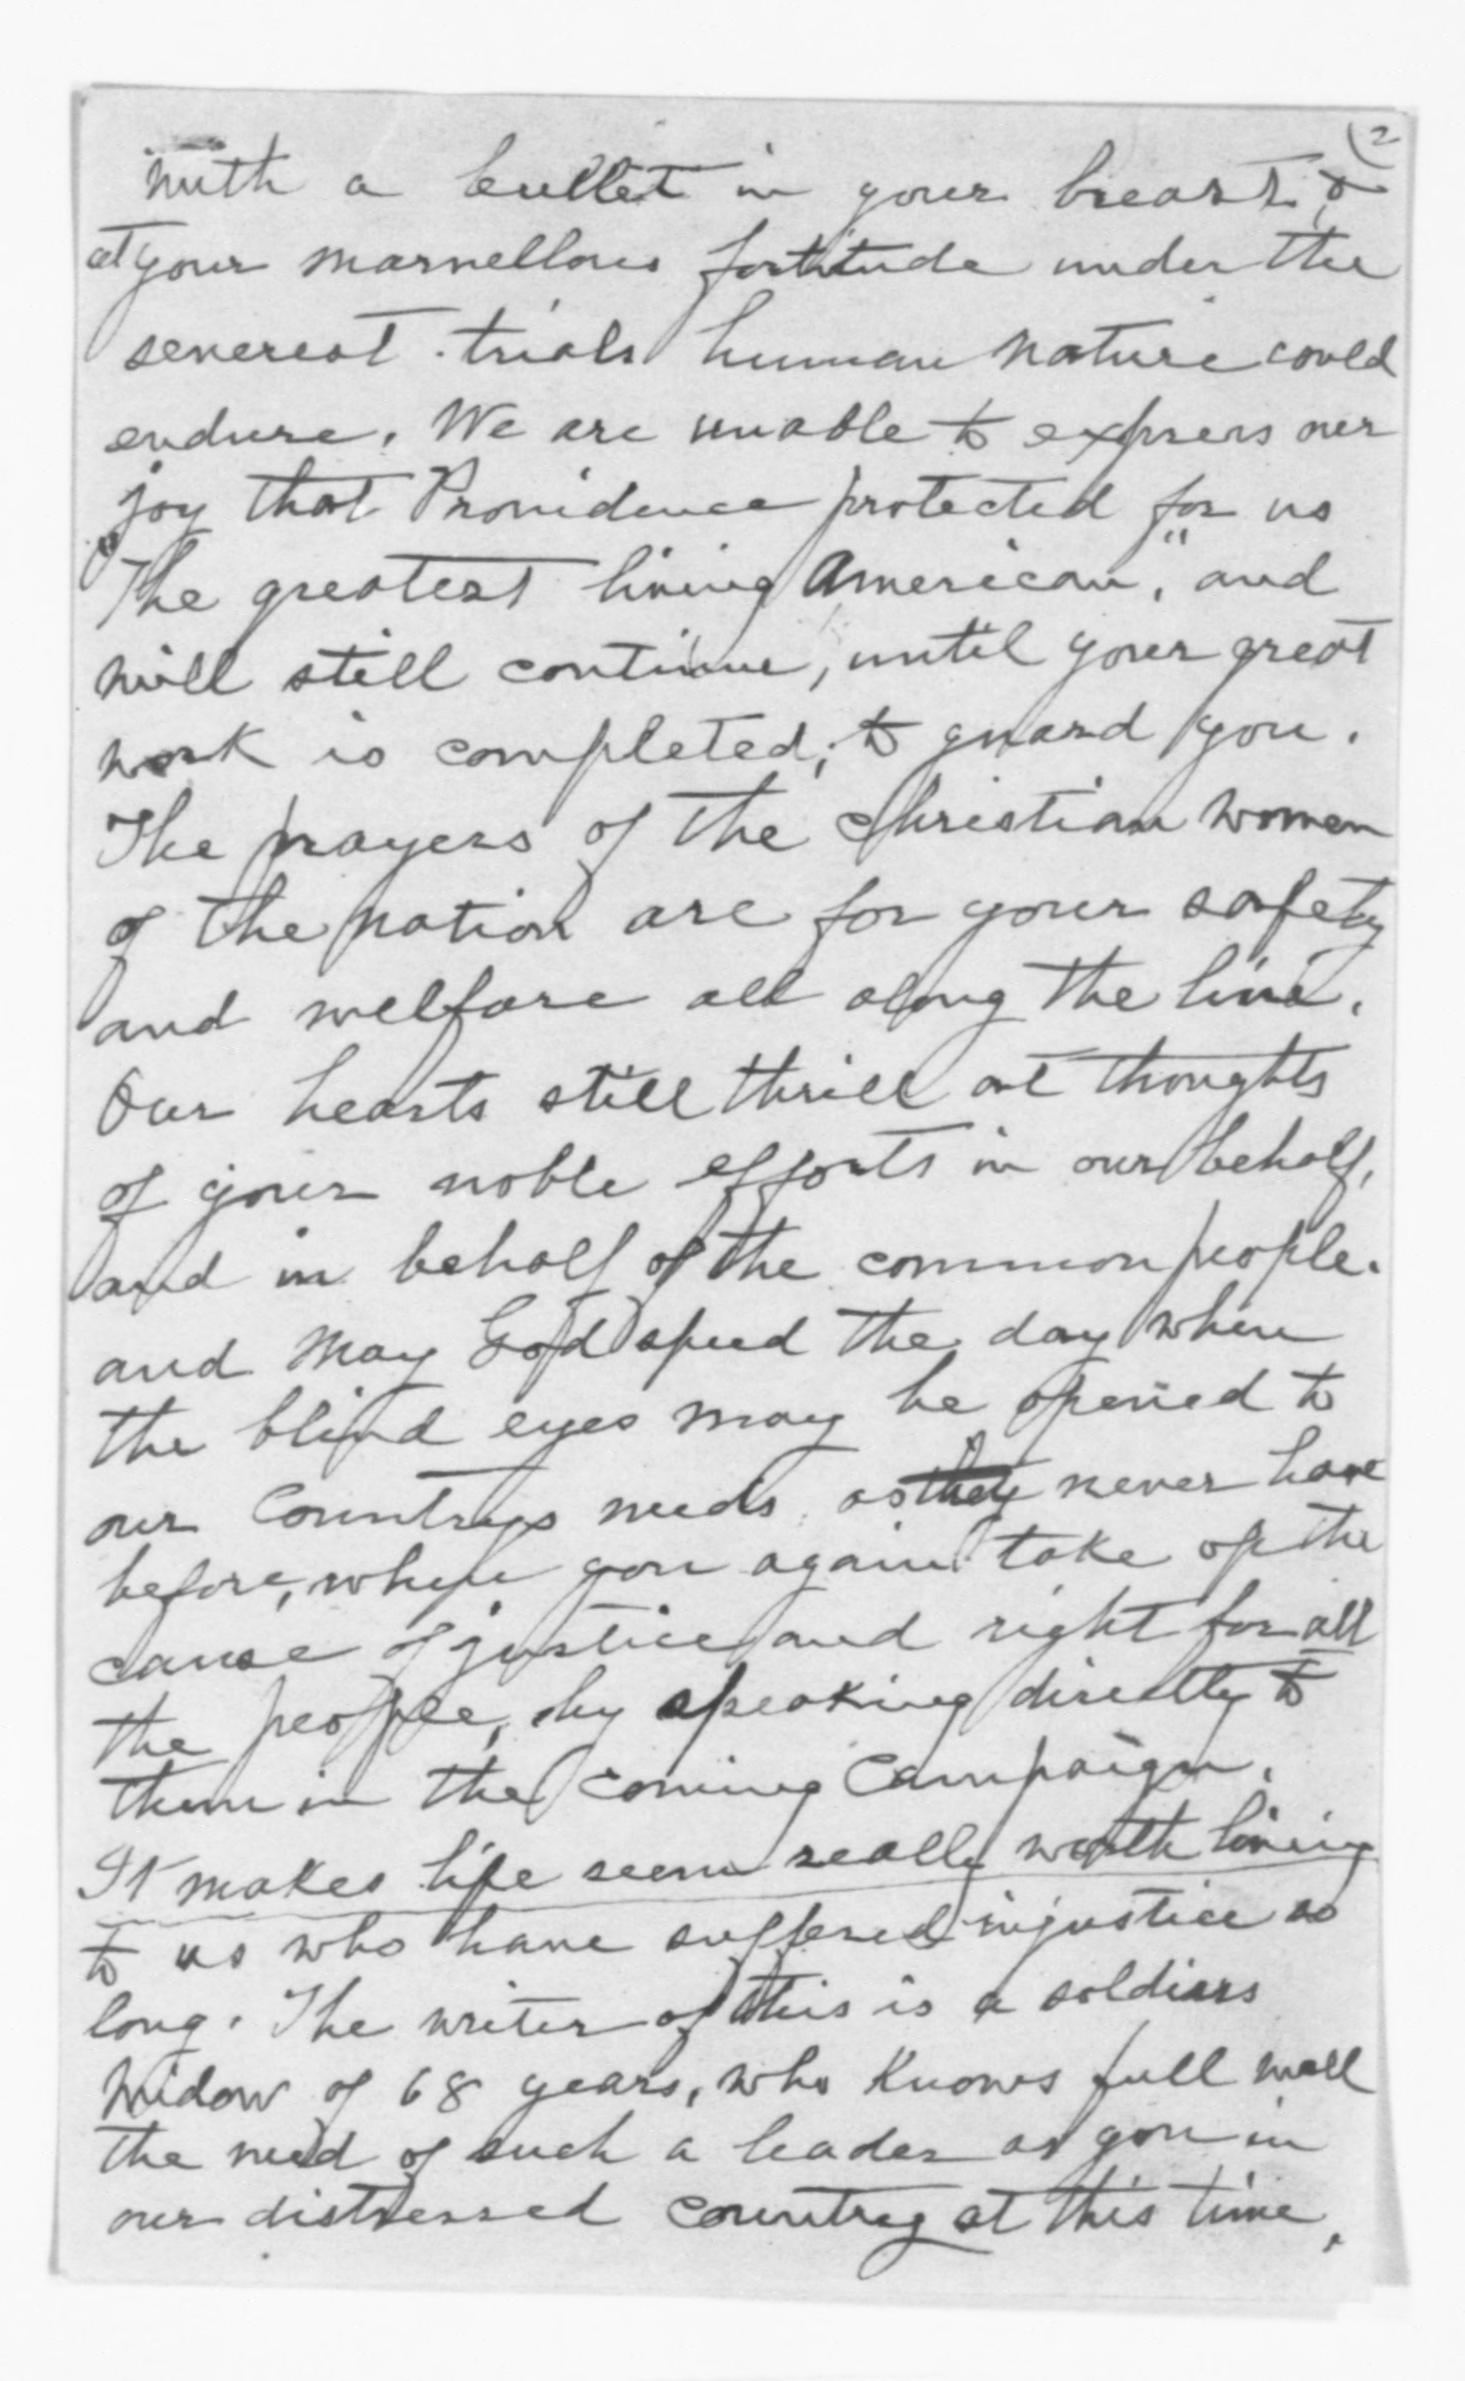 (2
with a bullet in your breast, &
at your marvellous fortitude under the
severest trials human nature could
endure. We are unable to express our
joy that Providence protected for us
"The greatest living American," and
will still continue, until your great
work is completed, to guard you.
The prayers of the Christian women
of the nation are for your safety
and welfare all along the line.
Our hearts still thrill at thoughts
of your noble efforts in our behalf,
and in behalf of the common people.
and may God speed the day when
the blind eyes may be opened to
our Countrys needs as they never have
before, when you again take up the
cause of justice and right for all
the people, by speaking directly to
them in the coming Campaign.
It makes life seem really worth living
to us who have suffered injustice so
long. The writer of this is a soldiers
widow of 68 years, who knows full well
the need of such a leader as you in
our distressed country at this time.